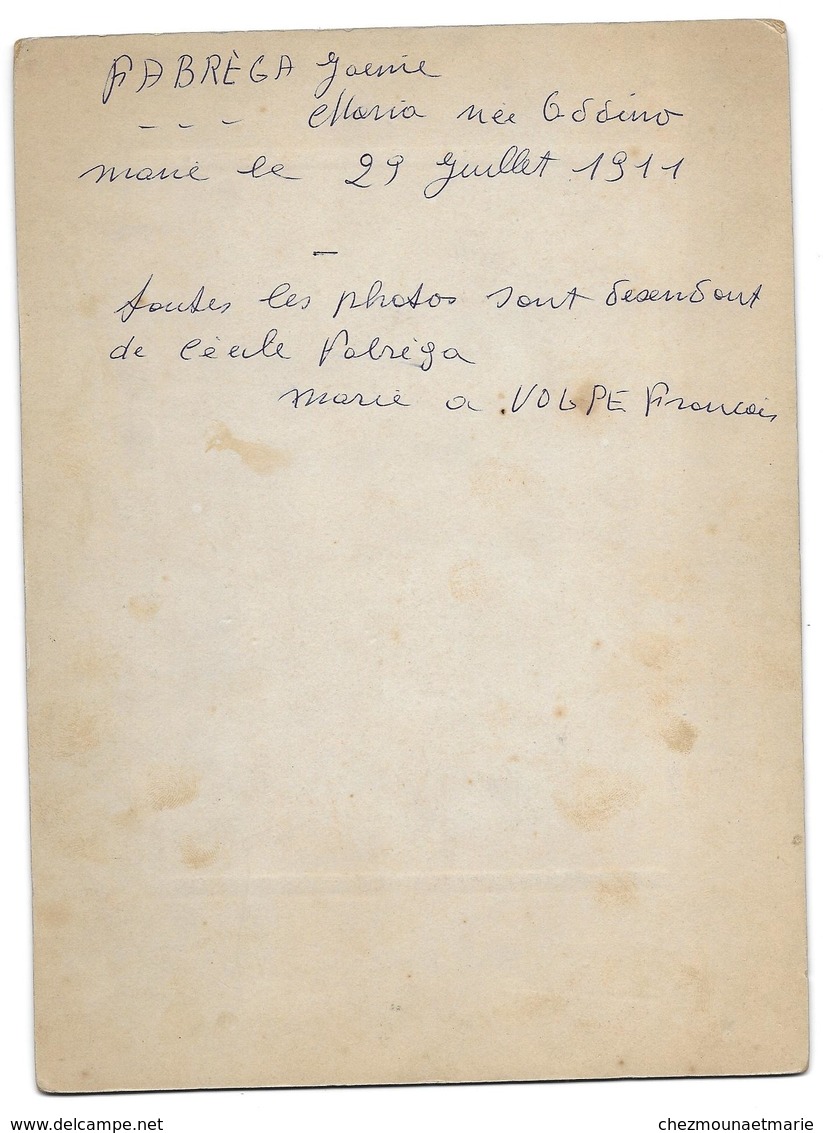 FABRÈGA Jaeme
- - - Maria née Oddino
marié le 29 Juillet 1911
—
toutes les photos sont desendant
de Cécile Fabréga
marié a VOLPE François
www.delcampe.net
chezmounaetmarie